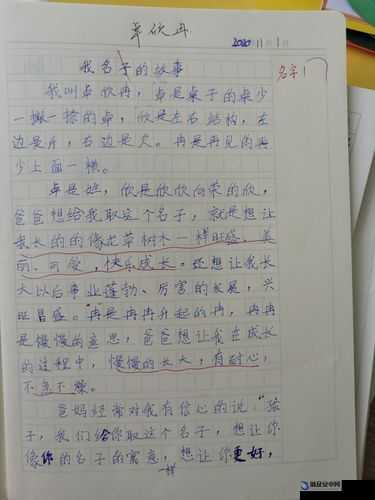 卓欣冉
2020 11 1日
我名子的故事
名字！
我叫卓欣冉，卓是桌子的桌少
一撇一捺的卓，欣是左右结构，左
边是斤，右边是欠。冉是再见的再
少上面一横。
卓是姓，欣是欣欣向荣的欣，
爸爸想给我取这个名子，就是想让
我长的的像花草树木一样旺盛、美
丽、可爱，快乐成长。还想让我长
大以后事业蓬勃、厉害的发展，兴
旺昌盛。"冉是冉冉升起的冉，冉冉
是慢慢的意思，爸爸想让我在成长
的过程中，慢慢的长大，有耐心，
不急不燥。
爸妈经常对我有信心的说："孩
子，我们给你取这个名子，想让你
像你的名子的寓意，想让你更好，
一样